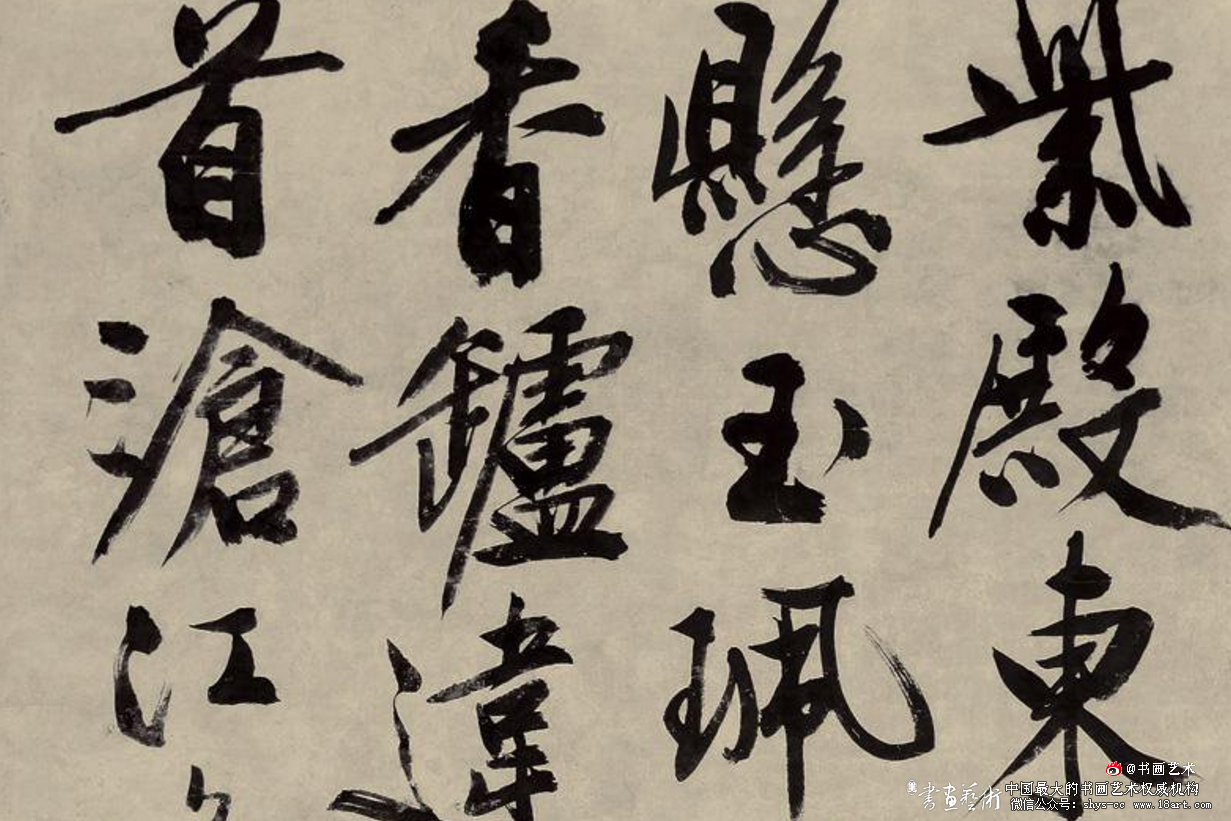 紫殿東
懸玉珮
香鑪違
首滄江
@书画艺术
書画藝術
中国最大的书画艺术权威机构
微信公众号: shys-cc www.18art.com